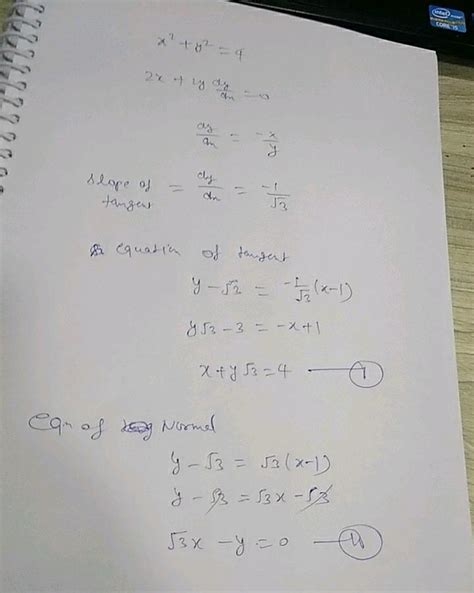 intel
CORE i5
x² + y² = 4
2x + 2y dy/dx = 0
dy/dx = -x/y
Slope of tangent = dy/dx = -1/√3
equation of tangent
y - √2 = -1/√3 (x-1)
y√3 - 3 = -x+1
x + y√3 = 4 — I
Eqn of Normal
y - √3 = √3(x-1)
y - √3 = √3x - √3
√3x - y = 0 — II